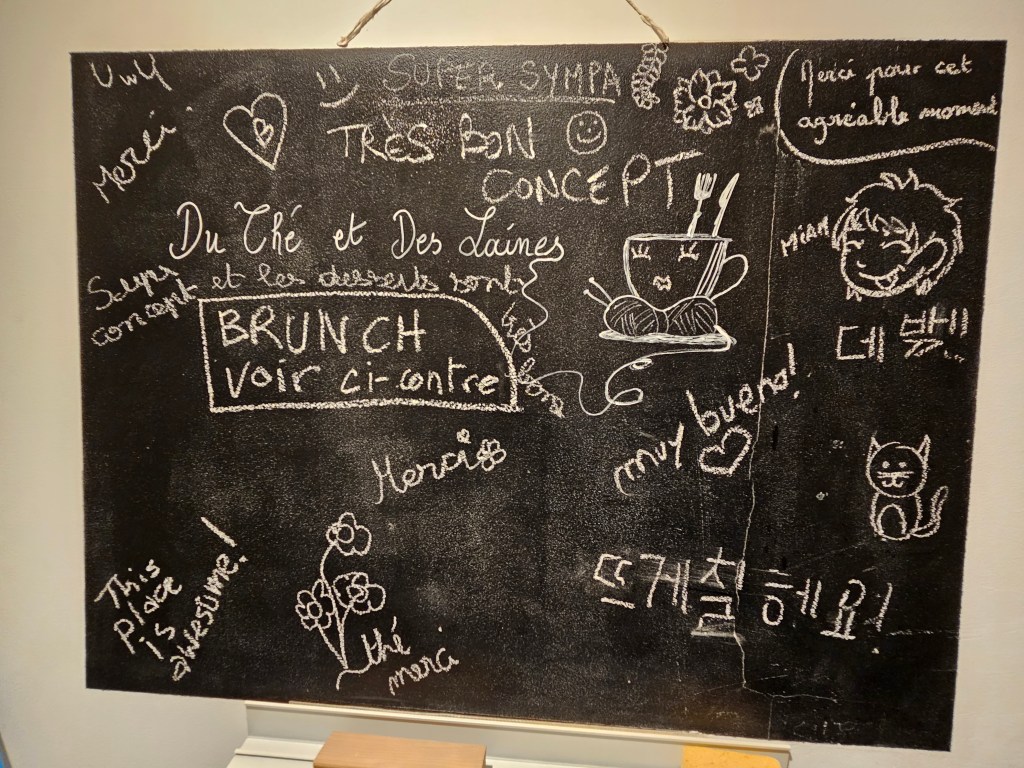 UwU
:)
SUPER SYMPA
Merci pour cet
agréable moment
Merci
B
TRÈS BON
CONCEPT
Du Thé et Des Laines
et les desserts sont
très
bon
Super
concept
BRUNCH
Voir ci-contre
MIAM
muy bueno!
Merci
This
place
is
awesome!
thé
merci
해요!